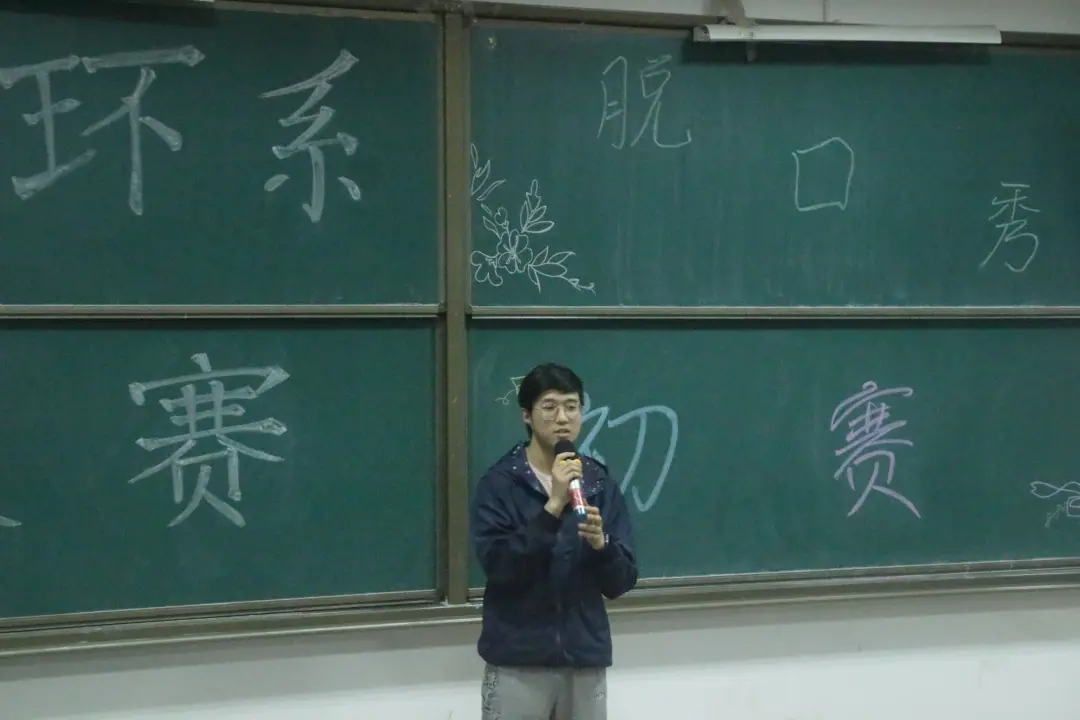 环系
脱口秀
赛
初赛